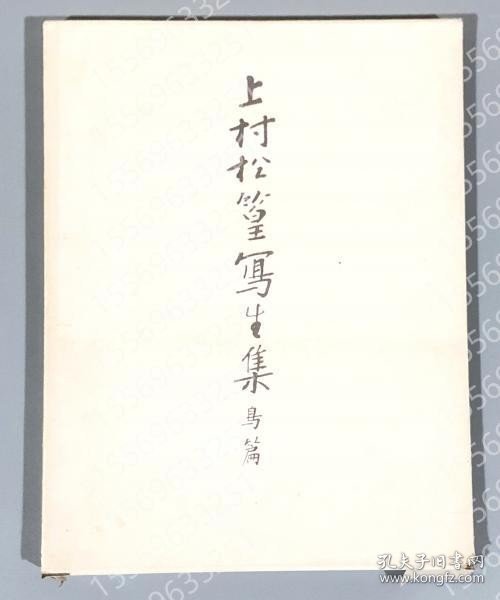 上村松篁寫生集鳥篇
孔夫子旧书网
www.kongfz.com